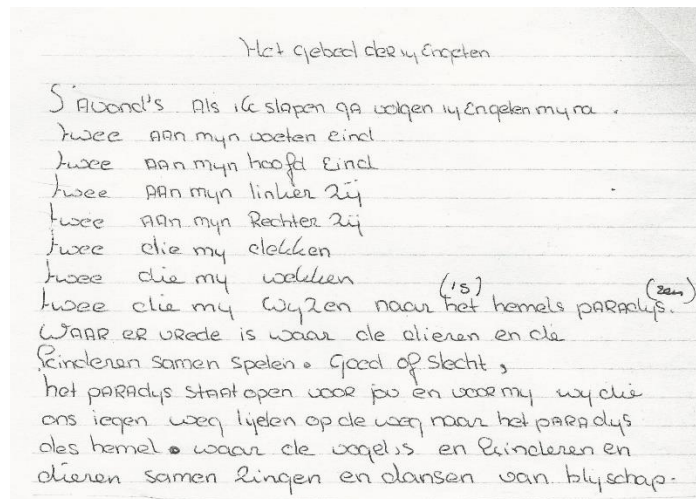 Het gebed der 14 Engelen
S'Avond's Als ik slapen ga volgen 14 Engelen my na.
twee AAn myn voeten eind
twee AAn myn hoofd eind
twee AAn myn linker zij
twee AAn myn Rechter zij
twee die my dekken
twee die my wekken
twee die my wyzen naar ('s) het hemels PARAdys. (zen)
WAAR ER vrede is waar de dieren en de
kinderen samen spelen. Goed of slecht,
het PARAdys STAAT open voor jou en voor my wy die
ons iegen weg lijelen op de weg naar het PARAdys
des hemel. waar de vogel,s en kinderen en
dieren samen zingen en dansen van blyschap.